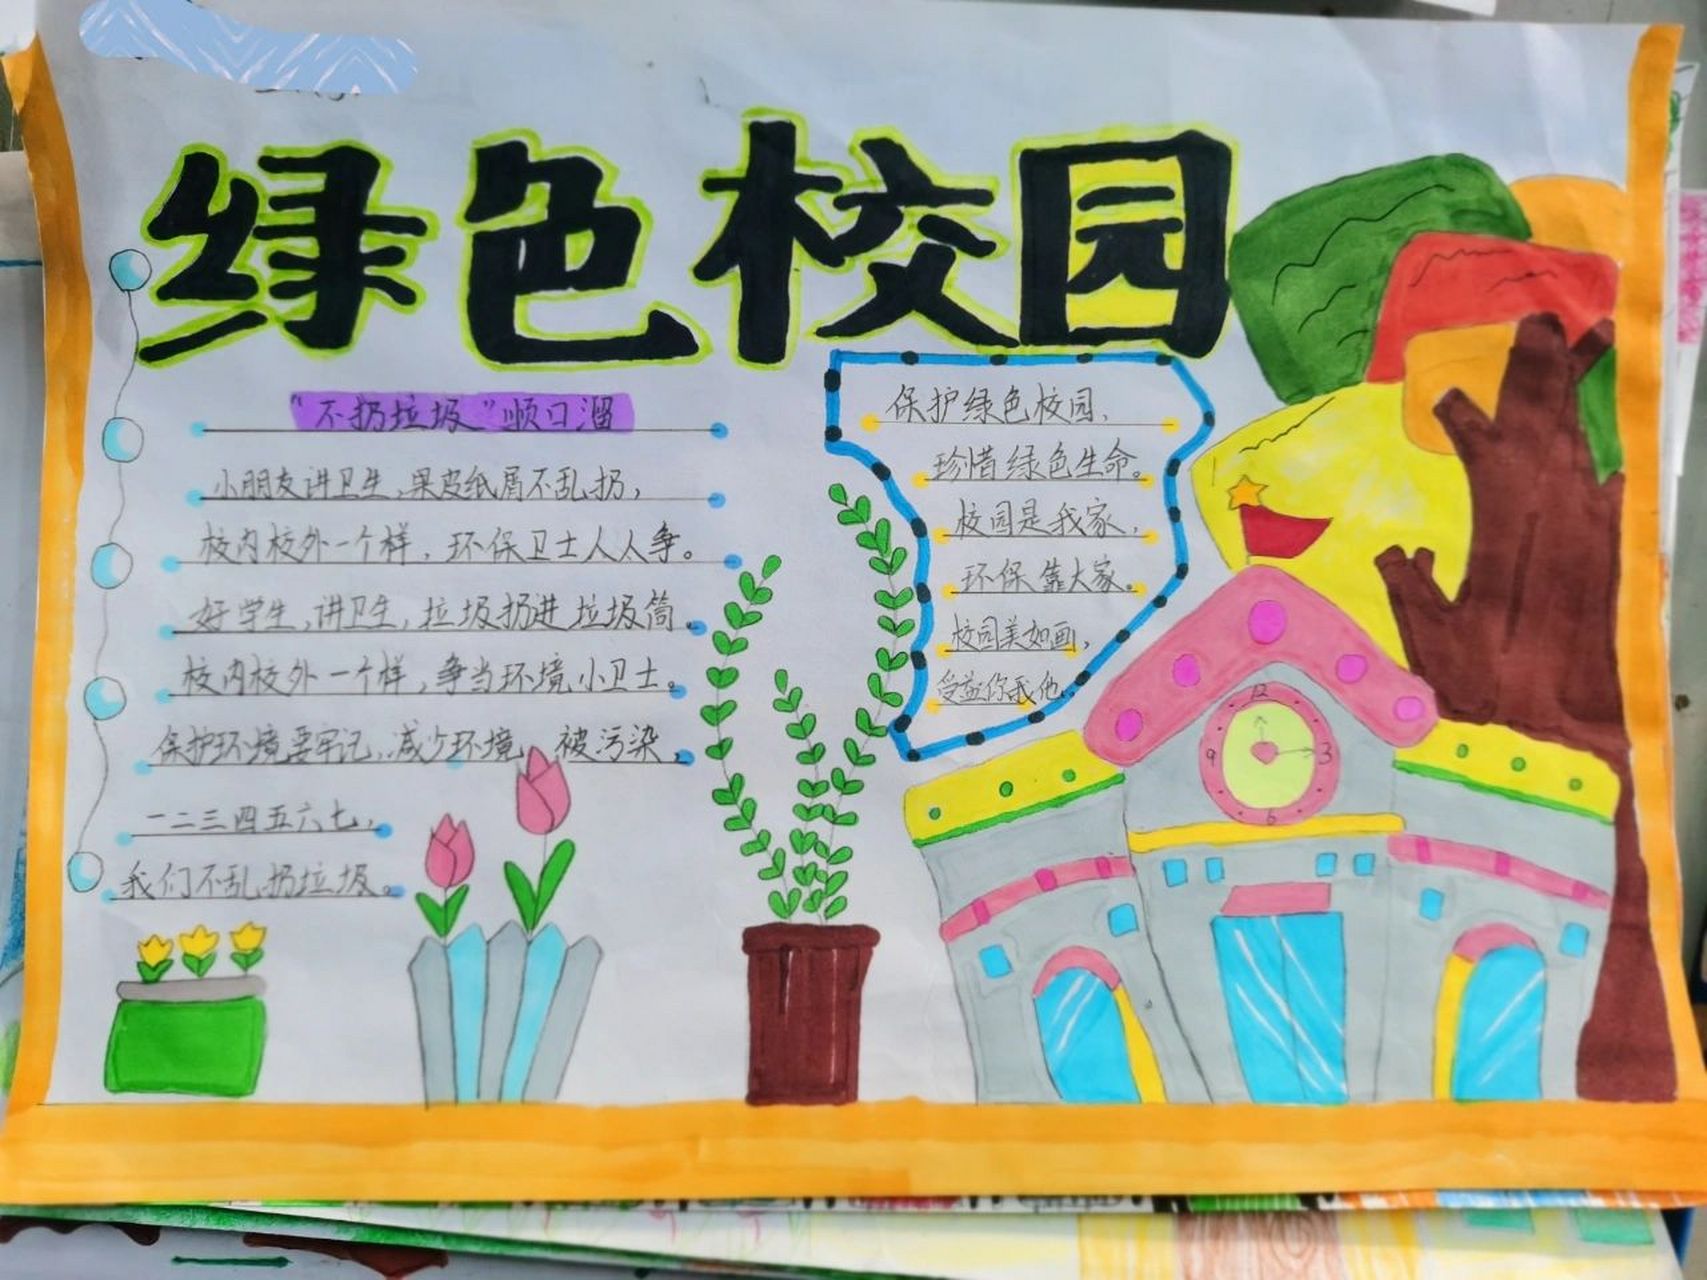 绿色校园
"不扔垃圾"顺口溜
小朋友讲卫生,果皮纸屑不乱扔,
校内校外一个样,环保卫士人人争。
好学生,讲卫生,垃圾扔进垃圾筒。
校内校外一个样,争当环境小卫士。
保护环境要牢记,减少环境被污染,
一二三四五六七,
我们不乱扔垃圾。
保护绿色校园,
珍惜绿色生命。
校园是我家,
环保靠大家。
校园美如画,
受益你我他。
12
9 3
6